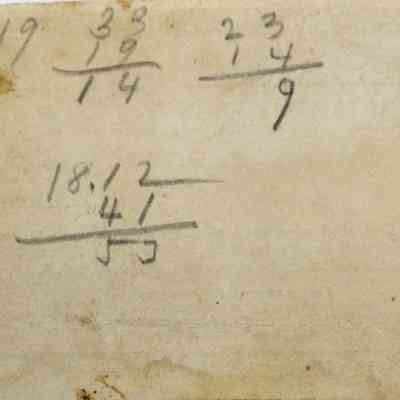 19 33 23
19 14
14 9
18.12
41
55